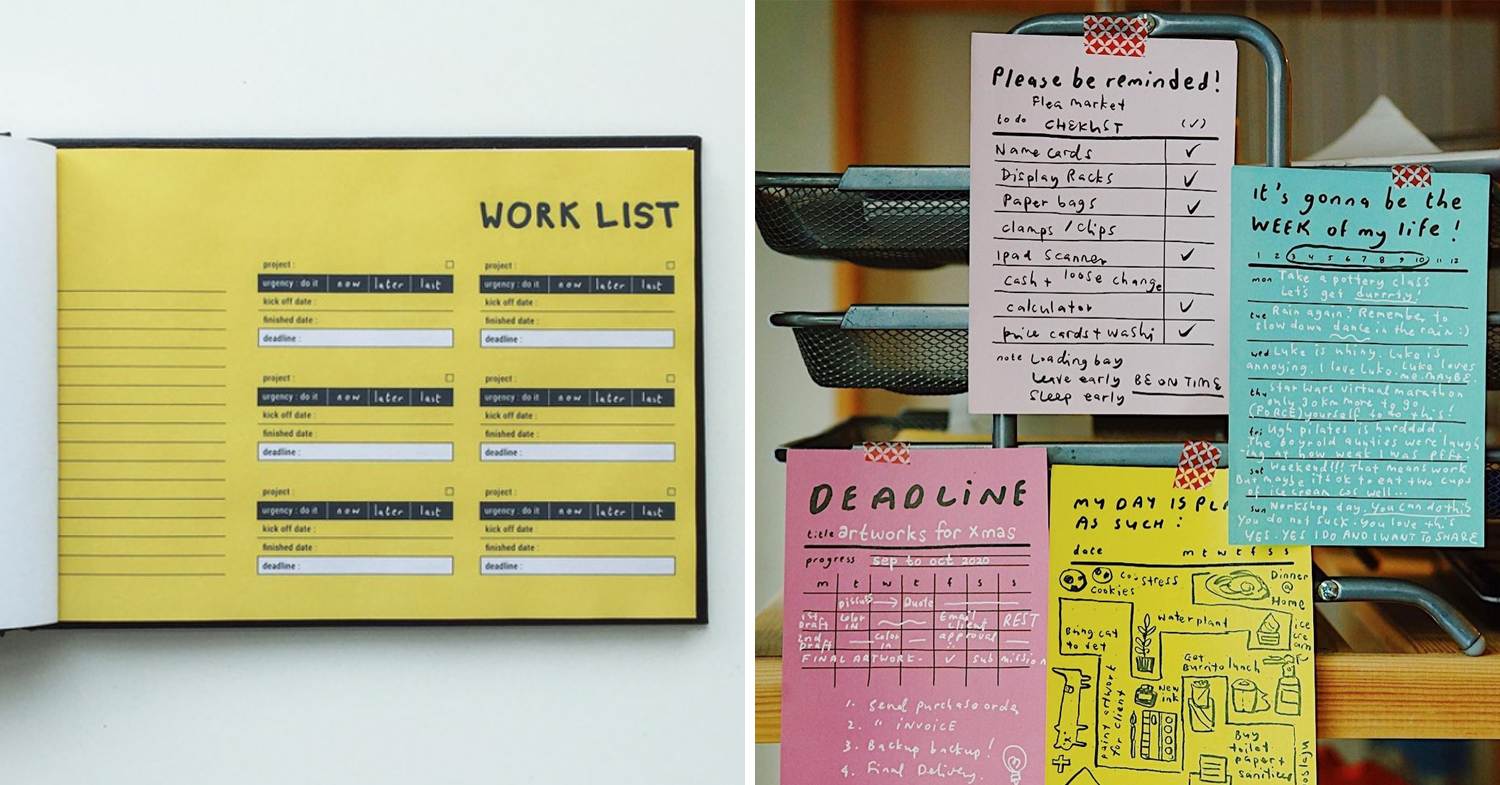 WORK LIST
project :
urgency : do it now later last
kick off date :
finished date :
deadline :
project :
urgency : do it now later last
kick off date :
finished date :
deadline :
project :
urgency : do it now later last
kick off date :
finished date :
deadline :
project :
urgency : do it now later last
kick off date :
finished date :
deadline :
project :
urgency : do it now later last
kick off date :
finished date :
deadline :
project :
urgency : do it now later last
kick off date :
finished date :
deadline :
Please be reminded!
Flea market
to do CHEKLIST (✓)
Name cards ✓
Display Racks ✓
Paper bags ✓
clamps / clips
ipad scanner ✓
cash + loose change
calculator ✓
price cards + washi ✓
note Loading bay
Leave early BE ON TIME
Sleep early
It's gonna be the
WEEK of my life!
1 2 3 4 5 6 7 8 9 10 11 12
mon Take a pottery class
Let's get durrrty!
tue Rain again? Remember to
slow down dance in the rain :)
wed Luke is whiny. Luke is
annoying. I love Luke. Luke loves
me. MAYBE.
thu Star Wars virtual marathon
only 30km more to go.
(FORCE) yourself to do this!
fri Ugh pilates is hardddd.
The boyrold aunties were laugh
-ing at how weak I was pfft
sat Weekend!!! That means work
But maybe it's ok to eat two cups
of ice cream as well...
sun Workshop day. You can do this
You do not suck. You love this
YES. YES I DO AND I WANT TO SHARE
DEADLINE
title artworks for xmas
progress sep to oct 2020
m t w t f s s
Discuss → Quote
1st Draft color in Email client REST
2nd Draft color in approval
FINAL ARTWORK - ✓ submission
1. Send purchase order
2. " INVOICE
3. Backup backup!
4. Final Delivery.
MY DAY IS PL
AS SUCH :
date m t w t f s s
stress
cookies
Dinner
@
Home
Bring cat
to vet
water plant
ice
cream
Got
Burrito lunch
paint artwork
for client
New
ink
Buy
toilet
paper +
sanitizer